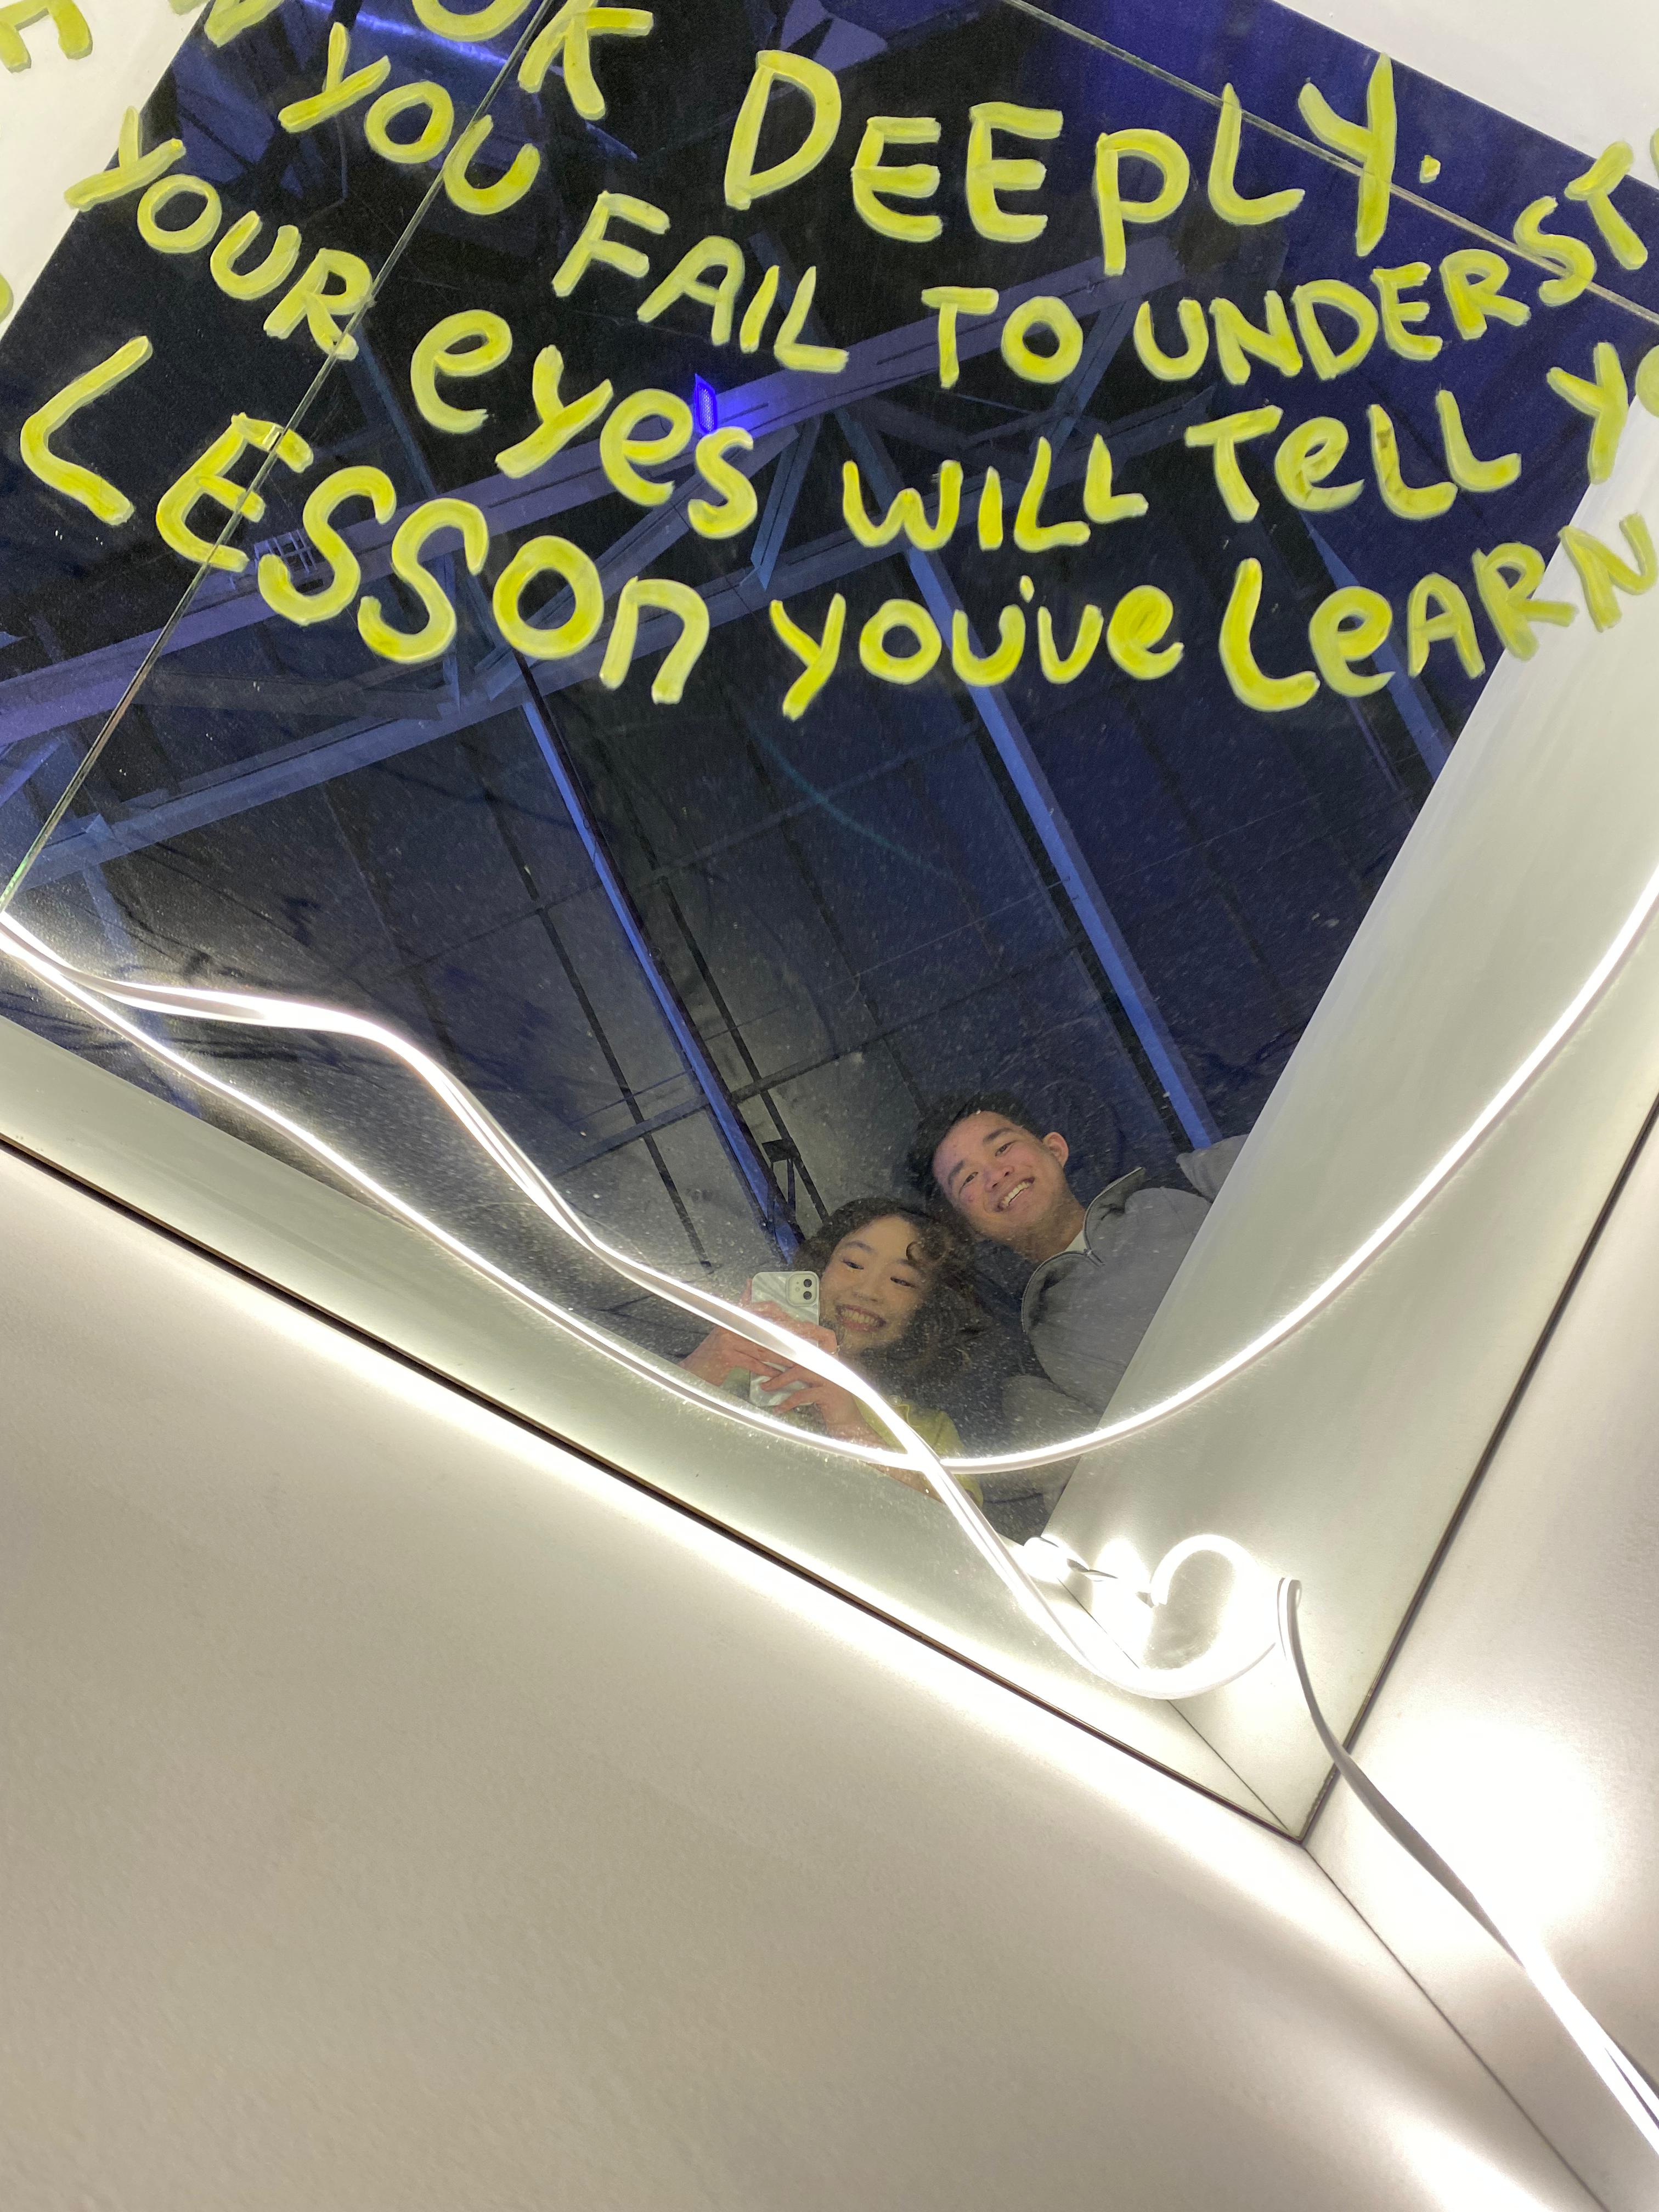 DEEPLY.
YOU FAIL TO UNDERST
YOUR eyes WILL Tell YO
LESSON you've LEARN